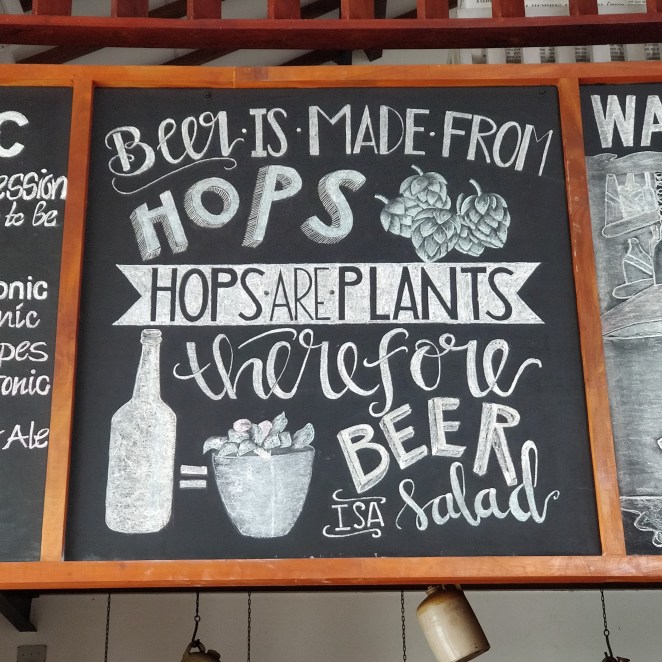 C
ession
to be
onic
nic
pes
ronic
Ale
BEER·IS·MADE·FROM
HOPS
HOPS·ARE·PLANTS
therefore
BEER
=
IS A
salad
WA